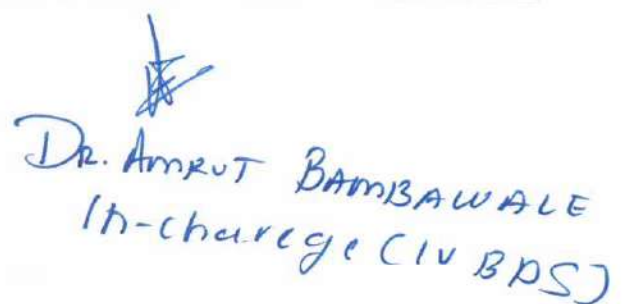 DR. AMRUT BAMBAWALE
In-charege (IV BDS)